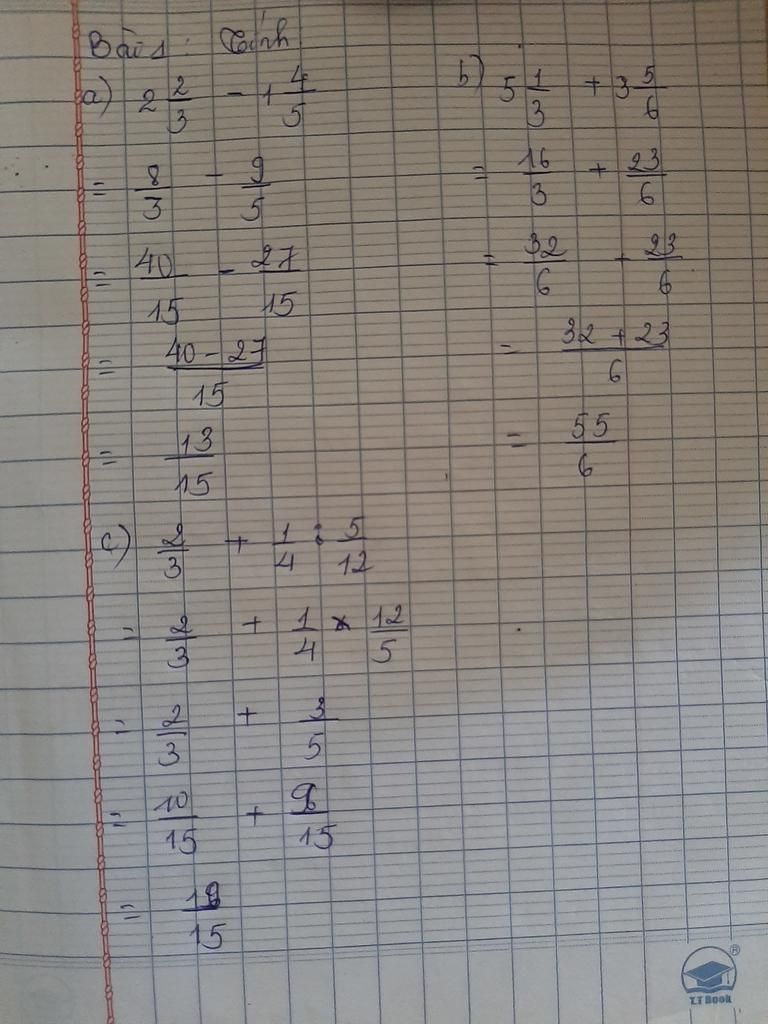 Bài 1: Tính
a) 2 2/3 - 1 4/5
= 8/3 - 9/5
= 40/15 - 27/15
= (40 - 27)/15
= 13/15
b) 5 1/3 + 3 5/6
= 16/3 + 23/6
= 32/6 + 23/6
= (32 + 23)/6
= 55/6
c) 2/3 + 1/4 : 5/12
= 2/3 + 1/4 × 12/5
= 2/3 + 3/5
= 10/15 +
=
T.T Book
®